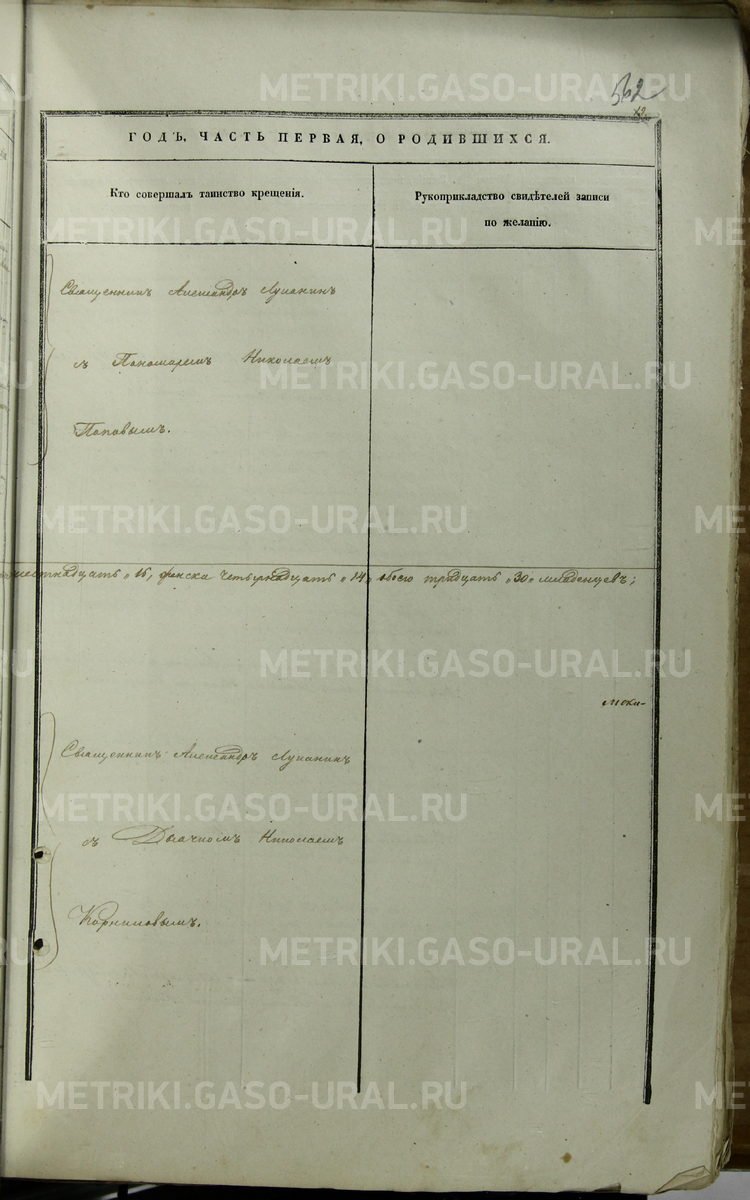 562
ГОДЪ, ЧАСТЬ ПЕРВАЯ, О РОДИВШИХСЯ.
Кто совершалъ таинство крещенія.
Рукоприкладство свидѣтелей записи
по желанію.
Священникъ Александръ Луканинъ
съ Пономаремъ Николаемъ
Поповымъ.
шестнадцать „16„ женска четырнадцать „14„ обоего тридцать „30„ младенцевъ;
Священникъ Александръ Луканинъ
съ Дьячкомъ Николаемъ
Корниловымъ.
METRIKI.GASO-URAL.RU